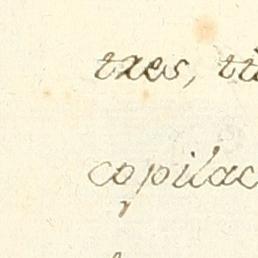 txes, tt
copilac